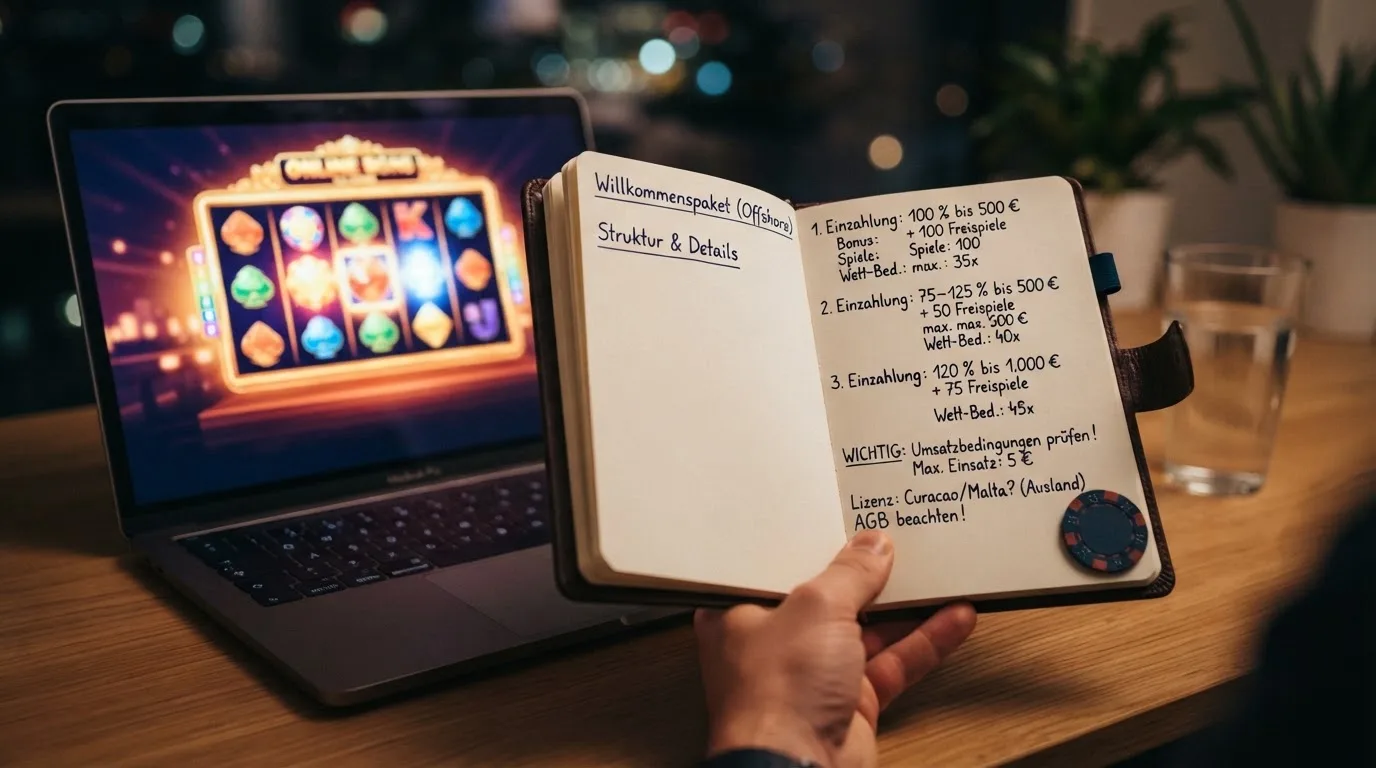 Willkommenspaket (Offshore)
Struktur & Details
1. Einzahlung: 100 % bis 500 €
+ 100 Freispiele
Bonus:
Spiele: Spiele: 100
Wett-Bed.: max.: 35x
2. Einzahlung: 75–125 % bis 500 €
+ 50 Freispiele
max. max. 500 €
Wett-Bed.: 40x
3. Einzahlung: 120 % bis 1.000 €
+ 75 Freispiele
Wett-Bed.: 45x
WICHTIG: Umsatzbedingungen prüfen!
Max. Einsatz: 5 €
Lizenz: Curacao/Malta? (Ausland)
AGB beachten!
ONLINE